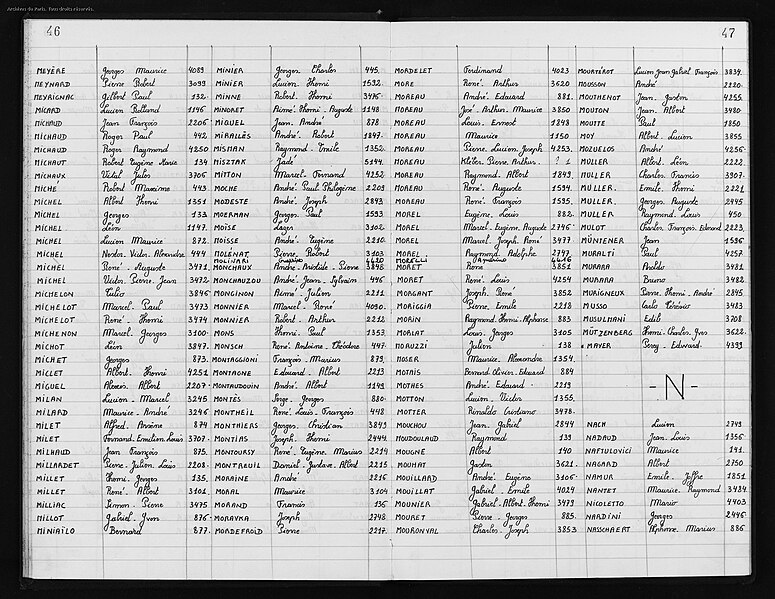 Archives de Paris. Tous droits réservés.
46
MEYÈRE Georges Maurice 4089 MINIER Georges Charles 445
MEYNARD Pierre Robert 3099 MINIER Lucien Henri 1592
MEYRIGNAC Gilbert Paul 132 MINNE Robert Henri 3476
MICARD Lucien 1146 MINORET Aimé Henri Auguste 1148
MICHAUD Jean François 2206 MIGUEL Jean André 878
MICHAUD Roger Paul 442 MIRALLÈS André Robert 1847
MICHAUD Roger Raymond 4250 MISMAN Raymond Emile 1352
MICHAUT Robert Eugène Marie 134 MISZTAK Jadé 5144
MICHAUX Vidal Jules 3706 MITTON Marcel Fernand 4252
MICHÉ Robert Maxime 443 MOCHE André Paul Philogène 2209
MICHEL Albert Henri 1351 MODESTE André Joseph 2843
MICHEL Georges 133 MOERMAN Georges Paul 1593
MICHEL Léon 1147 MOÏSE 3102
MICHEL Lucien Maurice 872 MOÏSSE André Eugène 2210
MICHEL Nestor Victor Alexandre 444 MOLENAT Pierre Robert 3103
MOLINARI 4410
MICHEL René Auguste 3471 MONCHAUX André Aristide Pierre 3848
MICHEL Victor Pierre Jean 3472 MONCHAUZOU André Jean Sylvain 446
MICHELON Tulio 3846 MONGINON Aimé Julien 2211
MICHELOT Marcel Paul 3473 MONNIER Marcel René 4090
MICHELOT René Henri 3474 MONNIER Robert Arthur 2212
MICHENON Marcel Georges 3100 MONS Henri Paul 1353
MICHOT Léon 3847 MONSCH René Antoine Théodore 447
MICHET Georges 873 MONTAGGIONI François Marius 879
MIGLET Albert Henri 4251 MONTAGNE Edouard Albert 2213
MIGUEL Alexis Albert 2207 MONTAUDOUIN André Albert 1149
MILAN Lucien Marcel 3245 MONTÈS Jorge Georges 880
MILARD Maurice André 3246 MONTHEIL René Louis François 448
MILET Alfred Arsène 874 MONTHIERS Georges Christian 3849
MILET Fernand Emilien Louis 3707 MONTIAS Joseph Henri 2444
MILHAUD Jean François 875 MONTOURSY René Eugène Marius 2214
MILLARDET Pierre Julien Louis 2208 MONTREUIL Daniel Gustave Albert 2215
MILLET Henri Georges 135 MORAINE André 2216
MILLET René Albert 3101 MORAL Maurice 3104
MILLIAC Simon Pierre 3475 MORAND Francis 136
MILLOT Gabriel Yvon 876 MORAVKA Joseph 2748
MINIAÏLO Bernard 877 MORDEFROID Pierre 2217
47
MORDELET Ferdinand 4023 MOURTÉROT Lucien Jean Gabriel François 3834
MORE René Arthur 3620 MOUSSON André 2220
MOREAU André Edouard 881 MOUTHENOT Jean Gaston 4255
MOREAU José Arthur Maurice 3850 MOUTON Jean Albert 3480
MOREAU Louis Ernest 1248 MOUTTE Paul 1850
MOREAU Maurice 1150 MOY Albert Lucien 3855
MOREAU Pierre Lucien Joseph 4253 MOZUELOS André 4256
MOREAU Kléber Pierre Arthur ? 1 MULLER Albert Léon 2222
MOREAU Raymond Albert 1849 MULLER Charles Francis 3907
MOREAU René Auguste 1594 MULLER Emile Henri 2221
MOREAU René François 1595 MULLER Georges Auguste 2445
MOREL Eugène Louis 882 MULLER Raymond Louis 450
MOREL Marcel Eugène Auguste 2746 MULOT Charles François Edouard 2223
MOREL Marcel Joseph René 3477 MÜNTENER Jean 1596
MOREL Raymond Adolphe 2747 MURALTI Paul 4257
MORELLI 4416
MORET René 3851 MURARA Anoldo 3481
MORET René Louis 4254 MURARA Bruno 3482
MORGANT Joseph René 3852 MURIGNEUX Pierre Henri André 2845
MORIGGIA Pierre Emile 2218 MUSSO Carlo Térésio 3483
MORIN Raymond Henri Alphonse 883 MUSULMANI Edib 3708
MORLAT Louis Georges 3105 MÜTZENBERG Henri Charles Yves 3622
MORUZZI Julien 138 MAYER Percy Edward 4399
MOSER Maurice Alexandre 1354
MOTAIS Bernard Olivier Edouard 884
MOTHES André Edouard 2219
MOTTON Lucien Victor 1355
MOTTER Rinaldo Cristiano 3478
- N -
MOUCHOU Jean Gabriel 2844 NACH Lucien 2749
MOUDOULAUD Raymond 139 NADAUD Jean Louis 1356
MOUGNE Albert 140 NAFTULOVICI Maurice 141
MOUHAT Gaston 3621 NAGARD Albert 2750
MOUILLARD André Eugène 3106 NAMUR Emile Joffre 1851
MOUILLAT Gabriel Emile 4024 NANTET Maurice Raymond 3484
MOUNIER Gabriel Albert Henri 3479 NICOLETTO Mario 4403
MOURET Pierre Georges 885 NARDINI Georges 2446
MOURONVAL Charles Joseph 3853 NASSCHAERT Alphonse Marius 886